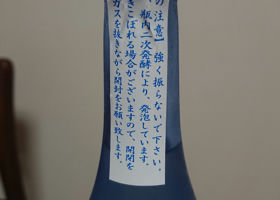 の注意】強く振らないで下さい。
瓶内二次発酵により、発泡しています。
きこぼれる場合がございますので、開閉を
ガスを抜きながら開封をお願い致します。